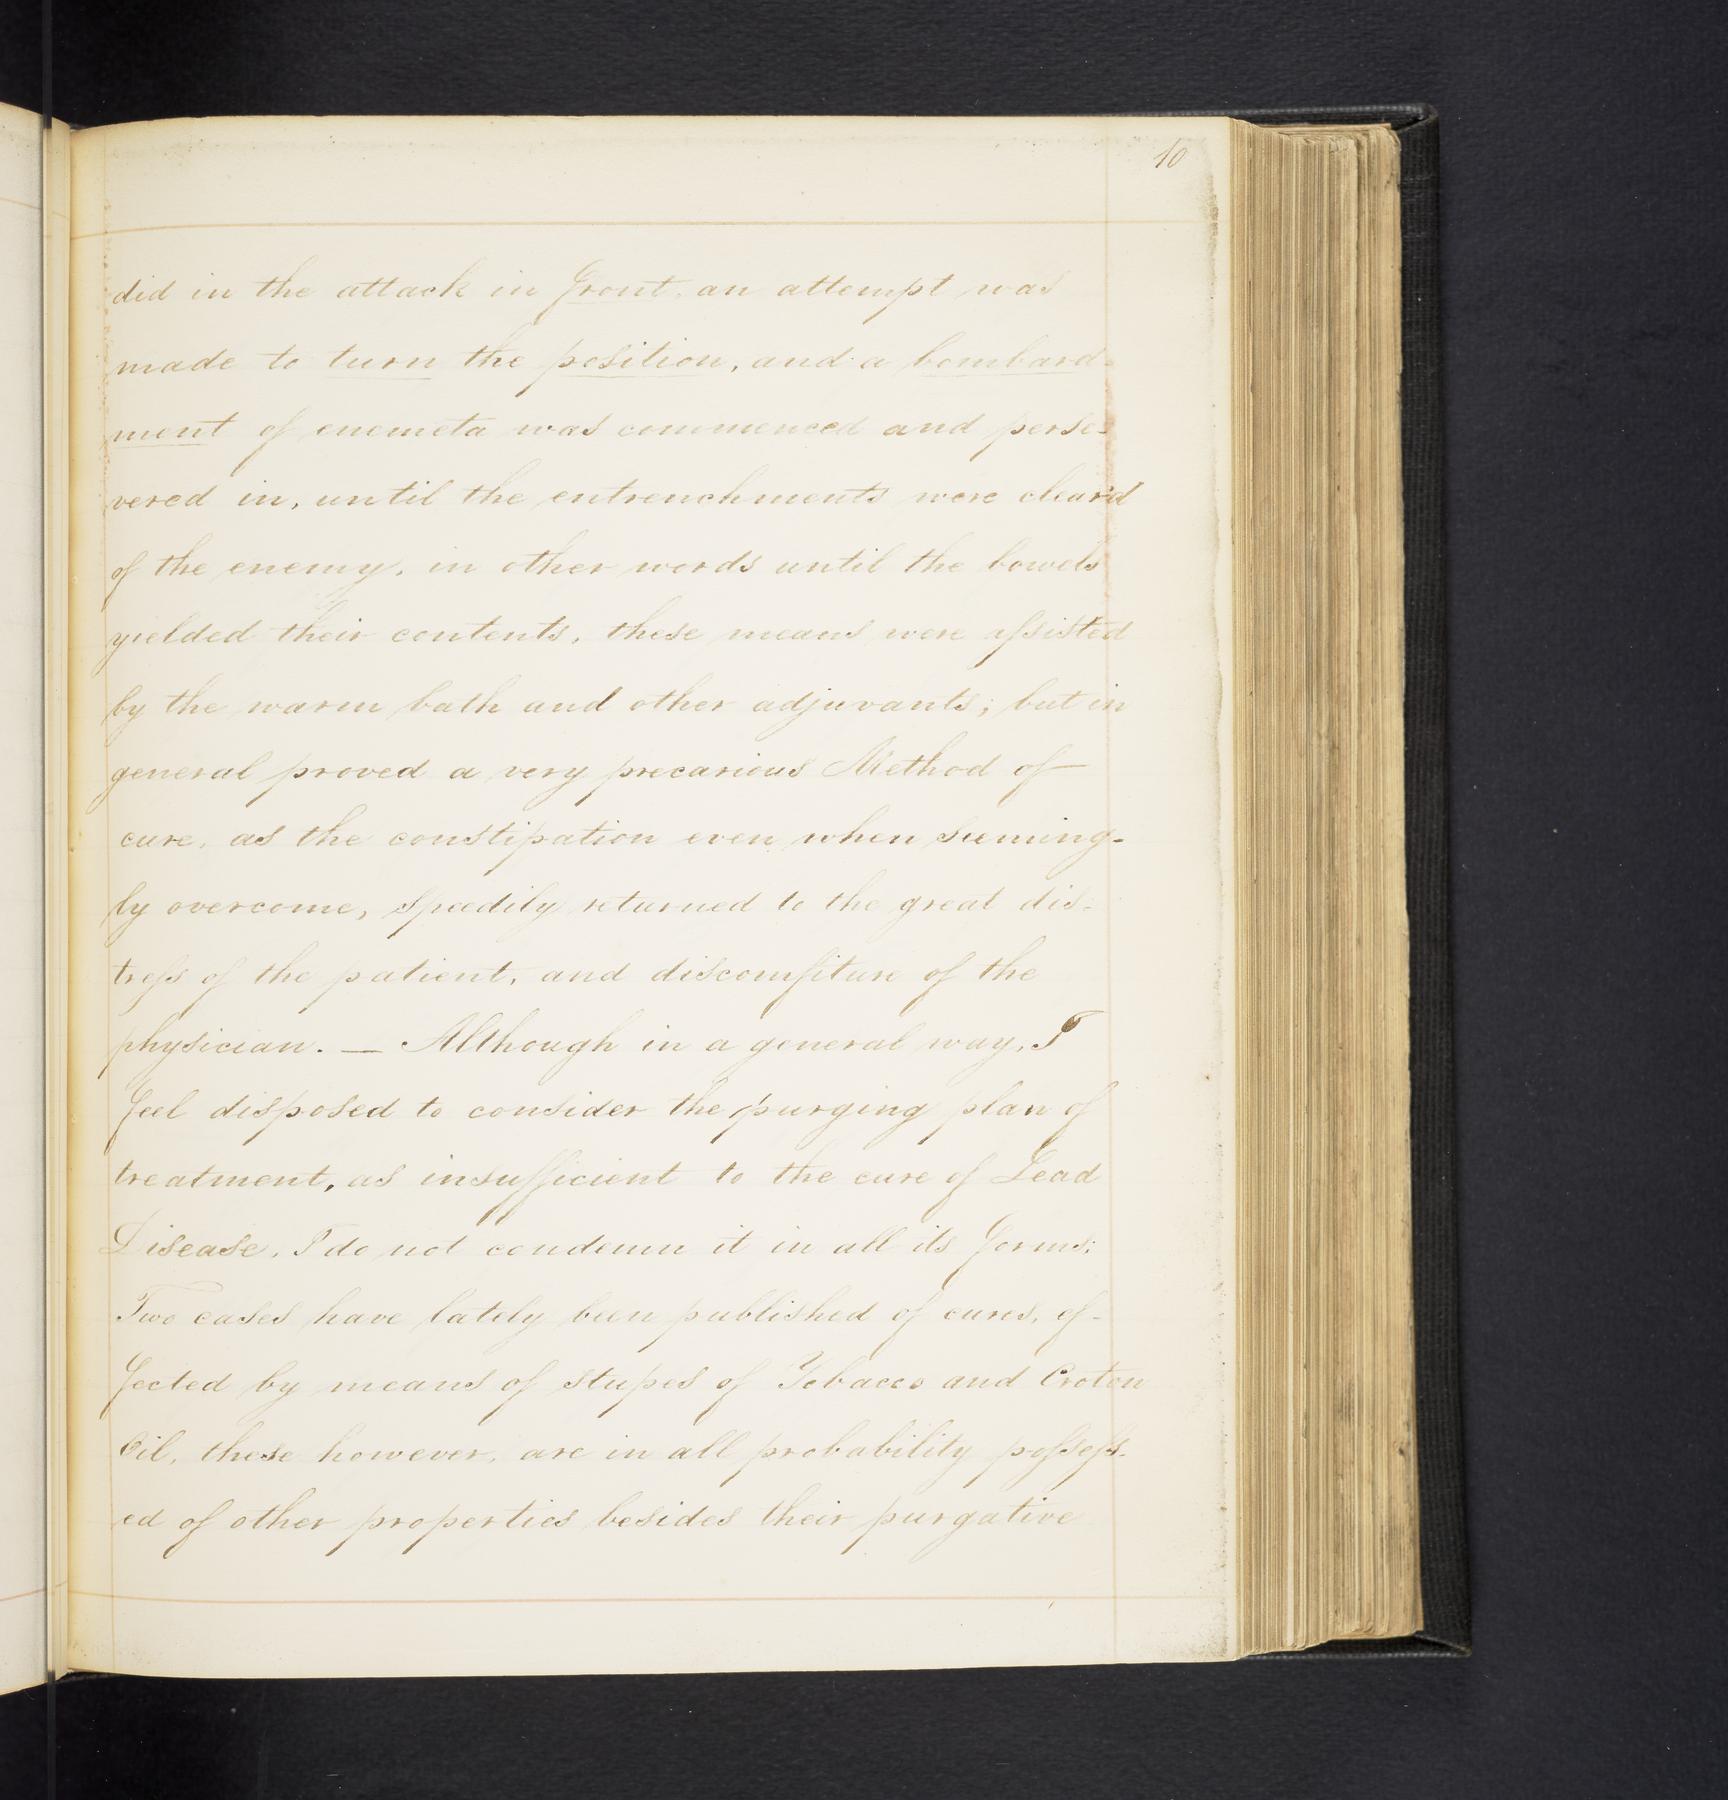 10
did in the attack in front, an attempt was
made to turn the position, and a bombard-
ment of enemeta was commenced and perse-
vered in, until the entrenchments were clear'd
of the enemy, in other words until the bowels
yielded their contents, these means were assisted
by the warm bath and other adjuvants; but in
general proved a very precarious Method of
cure, as the constipation even when seeming-
ly overcome, speedily returned to the great dis-
tress of the patient, and discomfiture of the
physician. — Although in a general way, I
feel disposed to consider the purging plan of
treatment, as insufficient to the cure of Lead
Disease, I do not condemn it in all its forms;
Two cases have lately been published of cures, ef-
fected by means of stupes of Tobacco and Croton
Oil, these however, are in all probability possess-
ed of other properties besides their purgative